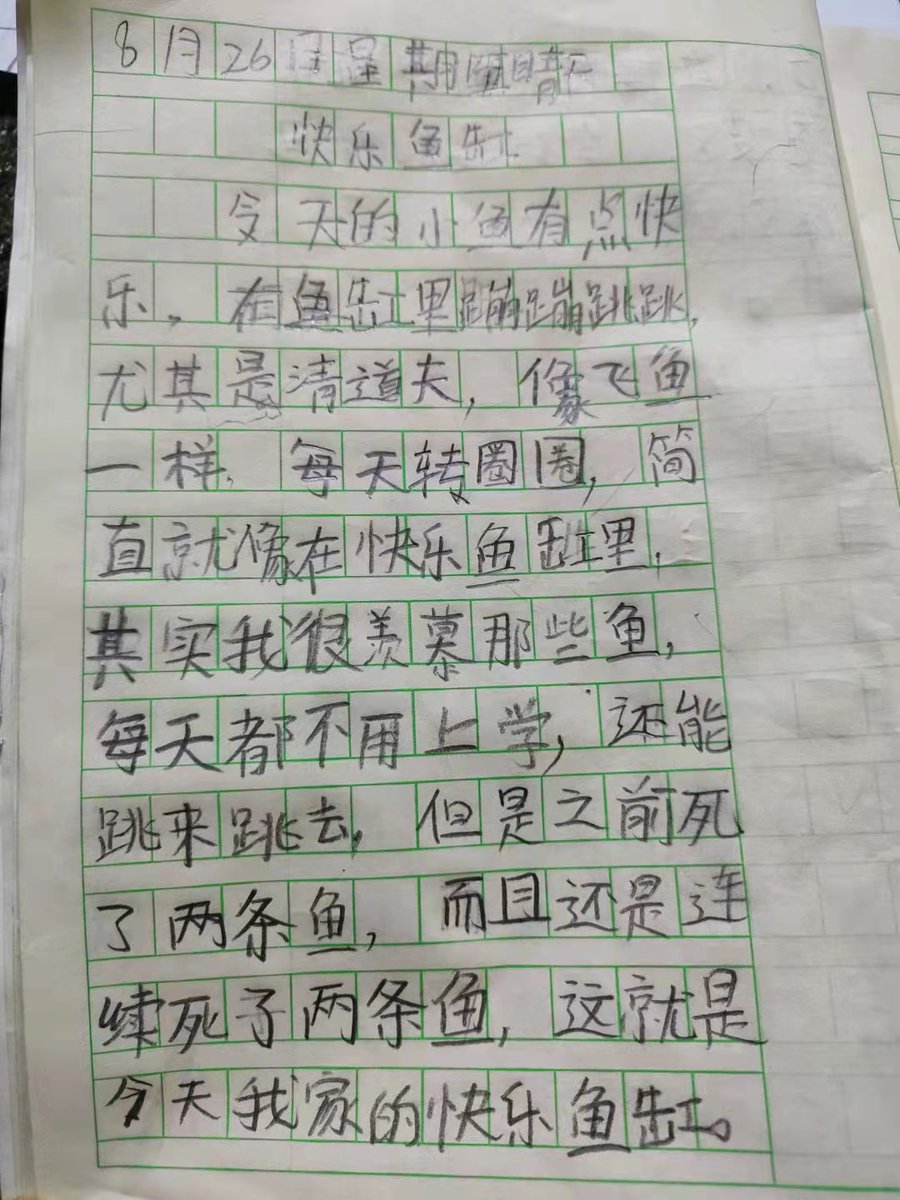 8月26日星期四晴
快乐鱼缸
今天的小鱼有点快
乐，在鱼缸里蹦蹦跳跳，
尤其是清道夫，像飞鱼
一样，每天转圈圈，简
直就像在快乐鱼缸里，
其实我很羡慕那些鱼，
每天都不用上学，还能
跳来跳去，但是之前死
了两条鱼，而且还是连
续死了两条鱼，这就是
今天我家的快乐鱼缸。